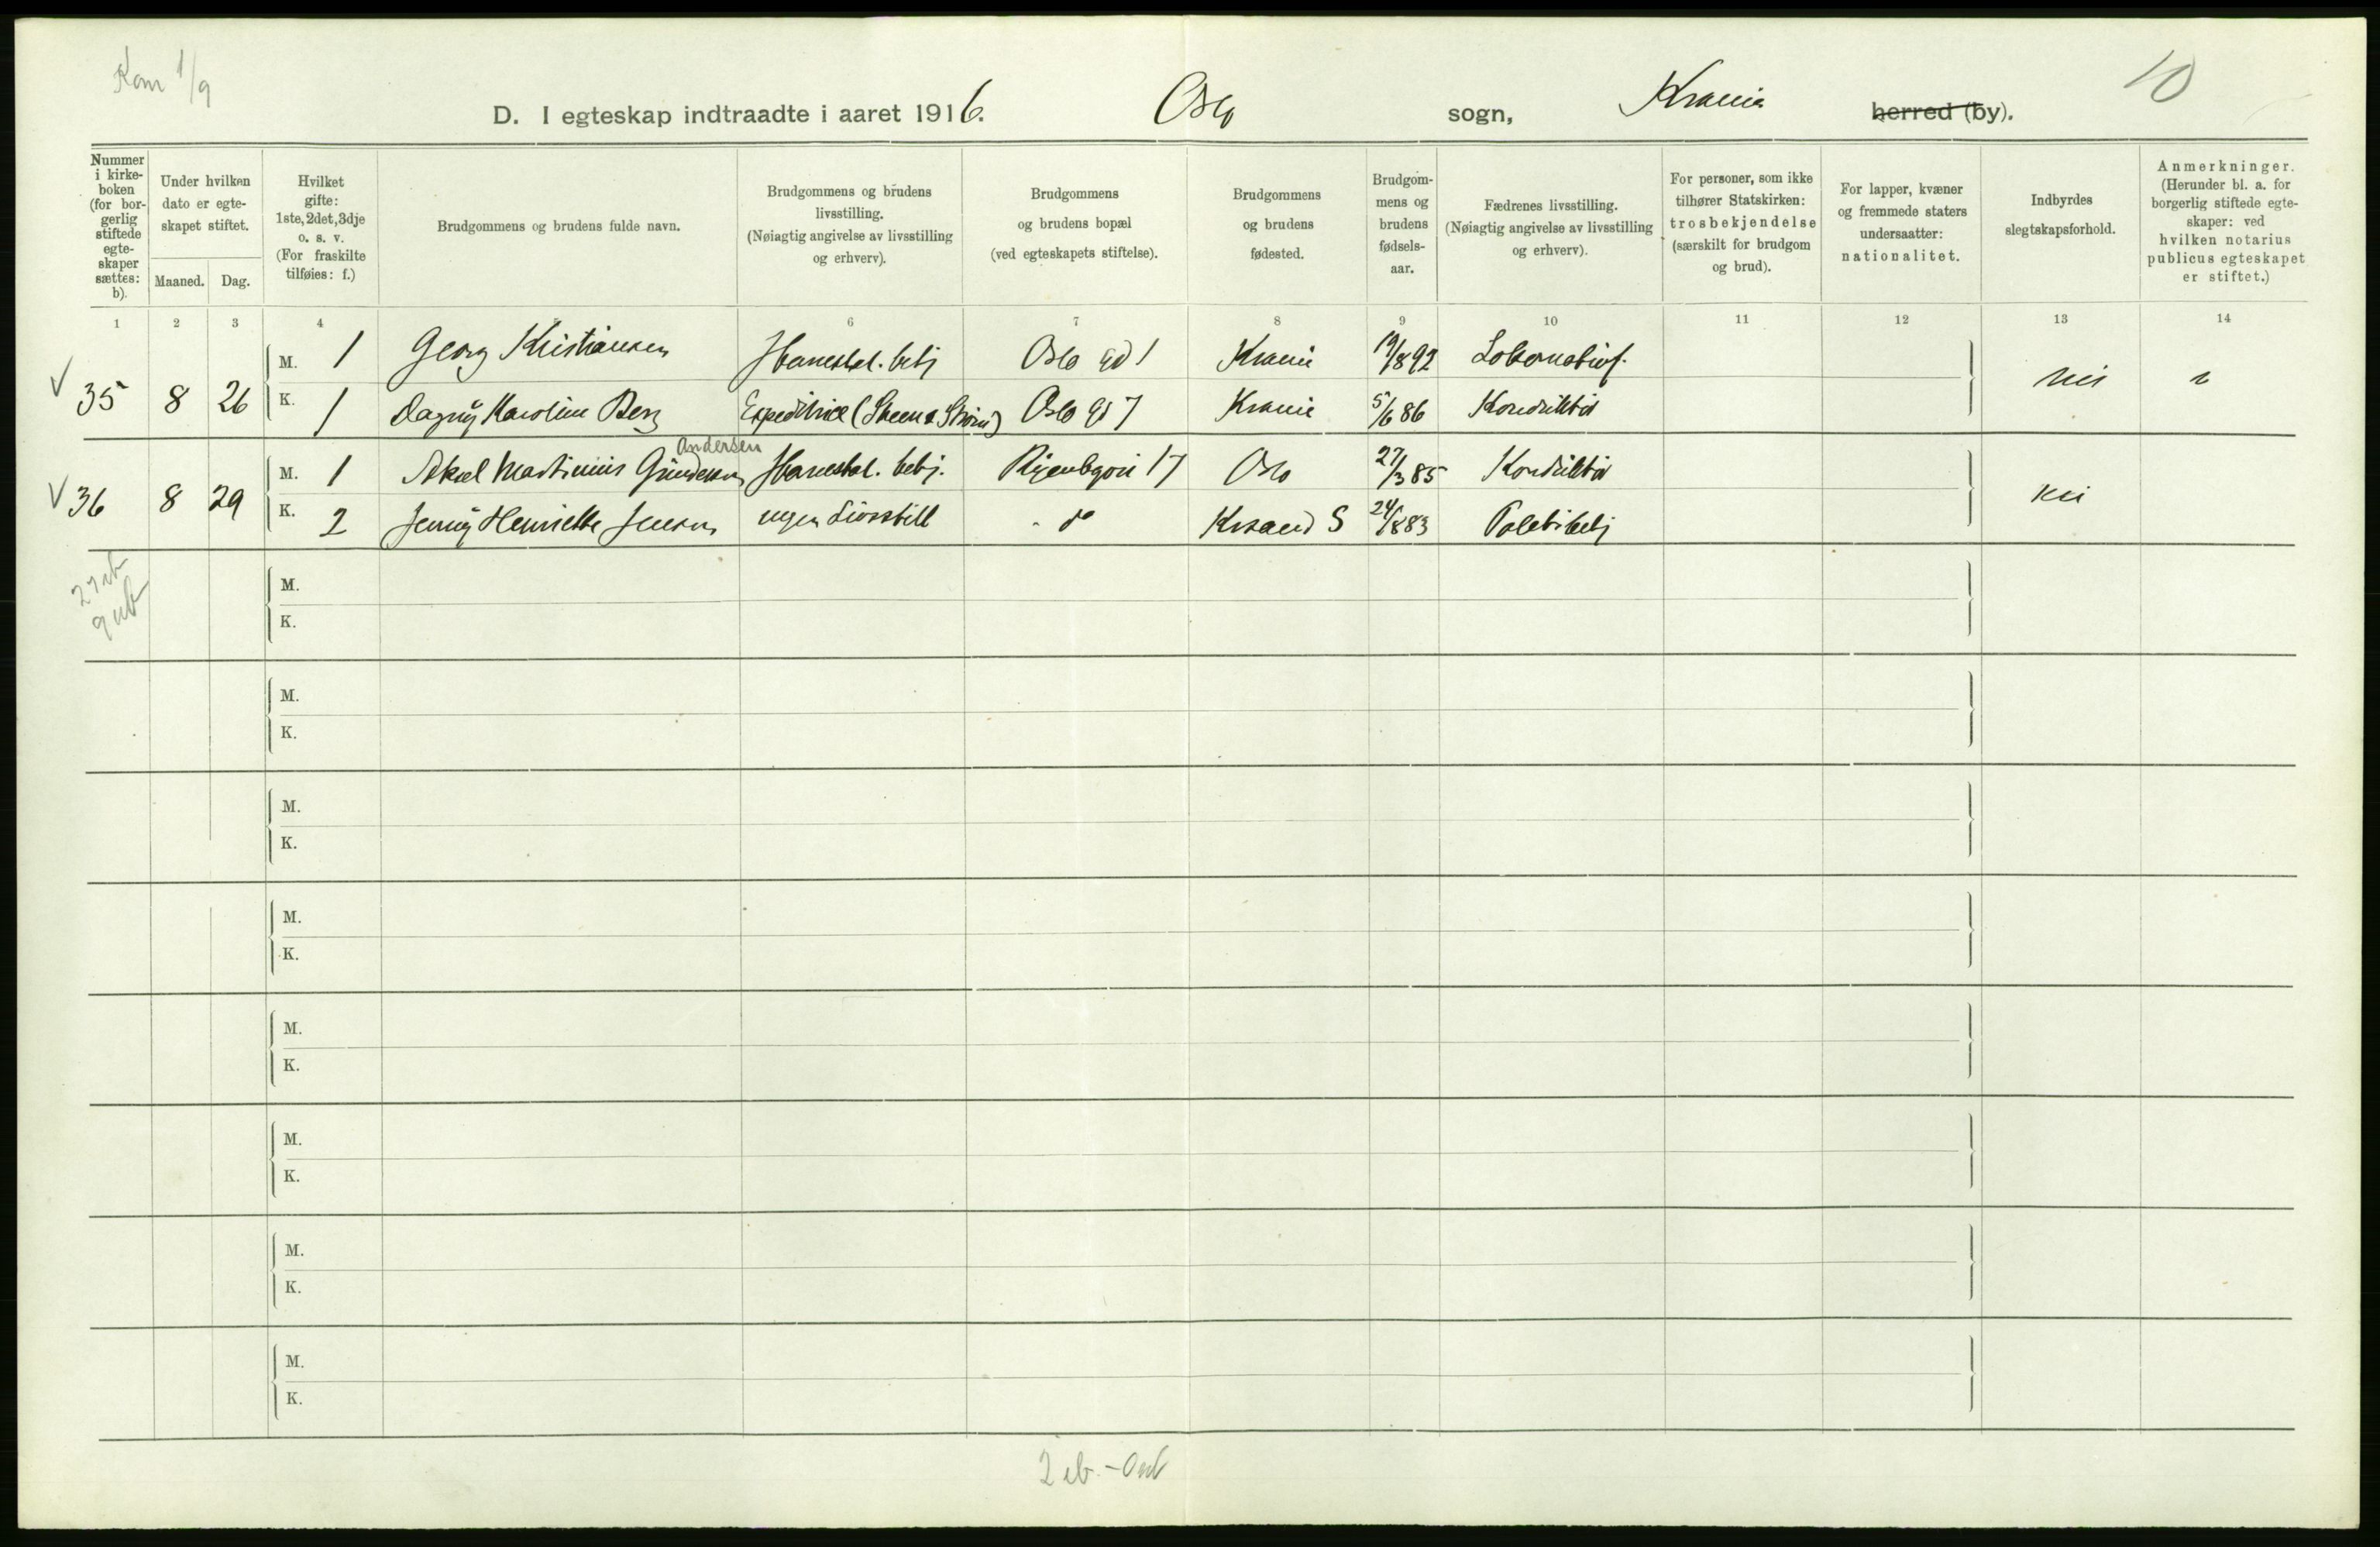 Kom 1/9
10
D. I egteskap indtraadte i aaret 1916. Oslo sogn, Krania herred (by).
Nummer i kirke-boken (for bor-gerlig stiftede egte-skaper sættes: b).
Under hvilken dato er egte-skapet stiftet.
Maaned. Dag.
Hvilket gifte: 1ste, 2det, 3dje o. s. v. (For fraskilte tilføies: f.)
Brudgommens og brudens fulde navn.
Brudgommens og brudens livsstilling. (Nøiagtig angivelse av livsstilling og erhverv).
Brudgommens og brudens bopæl (ved egteskapets stiftelse).
Brudgommens og brudens fødested.
Brudgom-mens og brudens fødsels-aar.
Fædrenes livsstilling. (Nøiagtig angivelse av livsstilling og erhverv).
For personer, som ikke tilhører Statskirken: trosbekjendelse (særskilt for brudgom og brud).
For lapper, kvæner og fremmede staters undersaatter: nationalitet.
Indbyrdes slegtskapsforhold.
Anmerkninger. (Herunder bl. a. for borgerlig stiftede egte-skaper: ved hvilken notarius publicus egteskapet er stiftet.)
1 2 3 4 6 7 8 9 10 11 12 13 14
M. 1 Georg Kristiansen Oslo gd 1 Krania 19/8 92 Lokomotivf.
35 8 26 nei
K. 1 Dagny Karoline Berg Expeditrice (Steen & Strøm) Oslo gd 7 Krania 5/6 86 Konduktør
Andersen
M. 1 Aksel Martinius Gundersen 17 Oslo 27/3 85 Konduktør
36 8 29 nei
K. 2 Jenny Henriette Jensen ingen Livsstill - do Krsand S 24/8 83
27 eb
9 ub
M.
K.
M.
K.
M.
K.
M.
K.
M.
K.
M.
K.
M.
K.
M.
K.
2 eb. - 0 ub